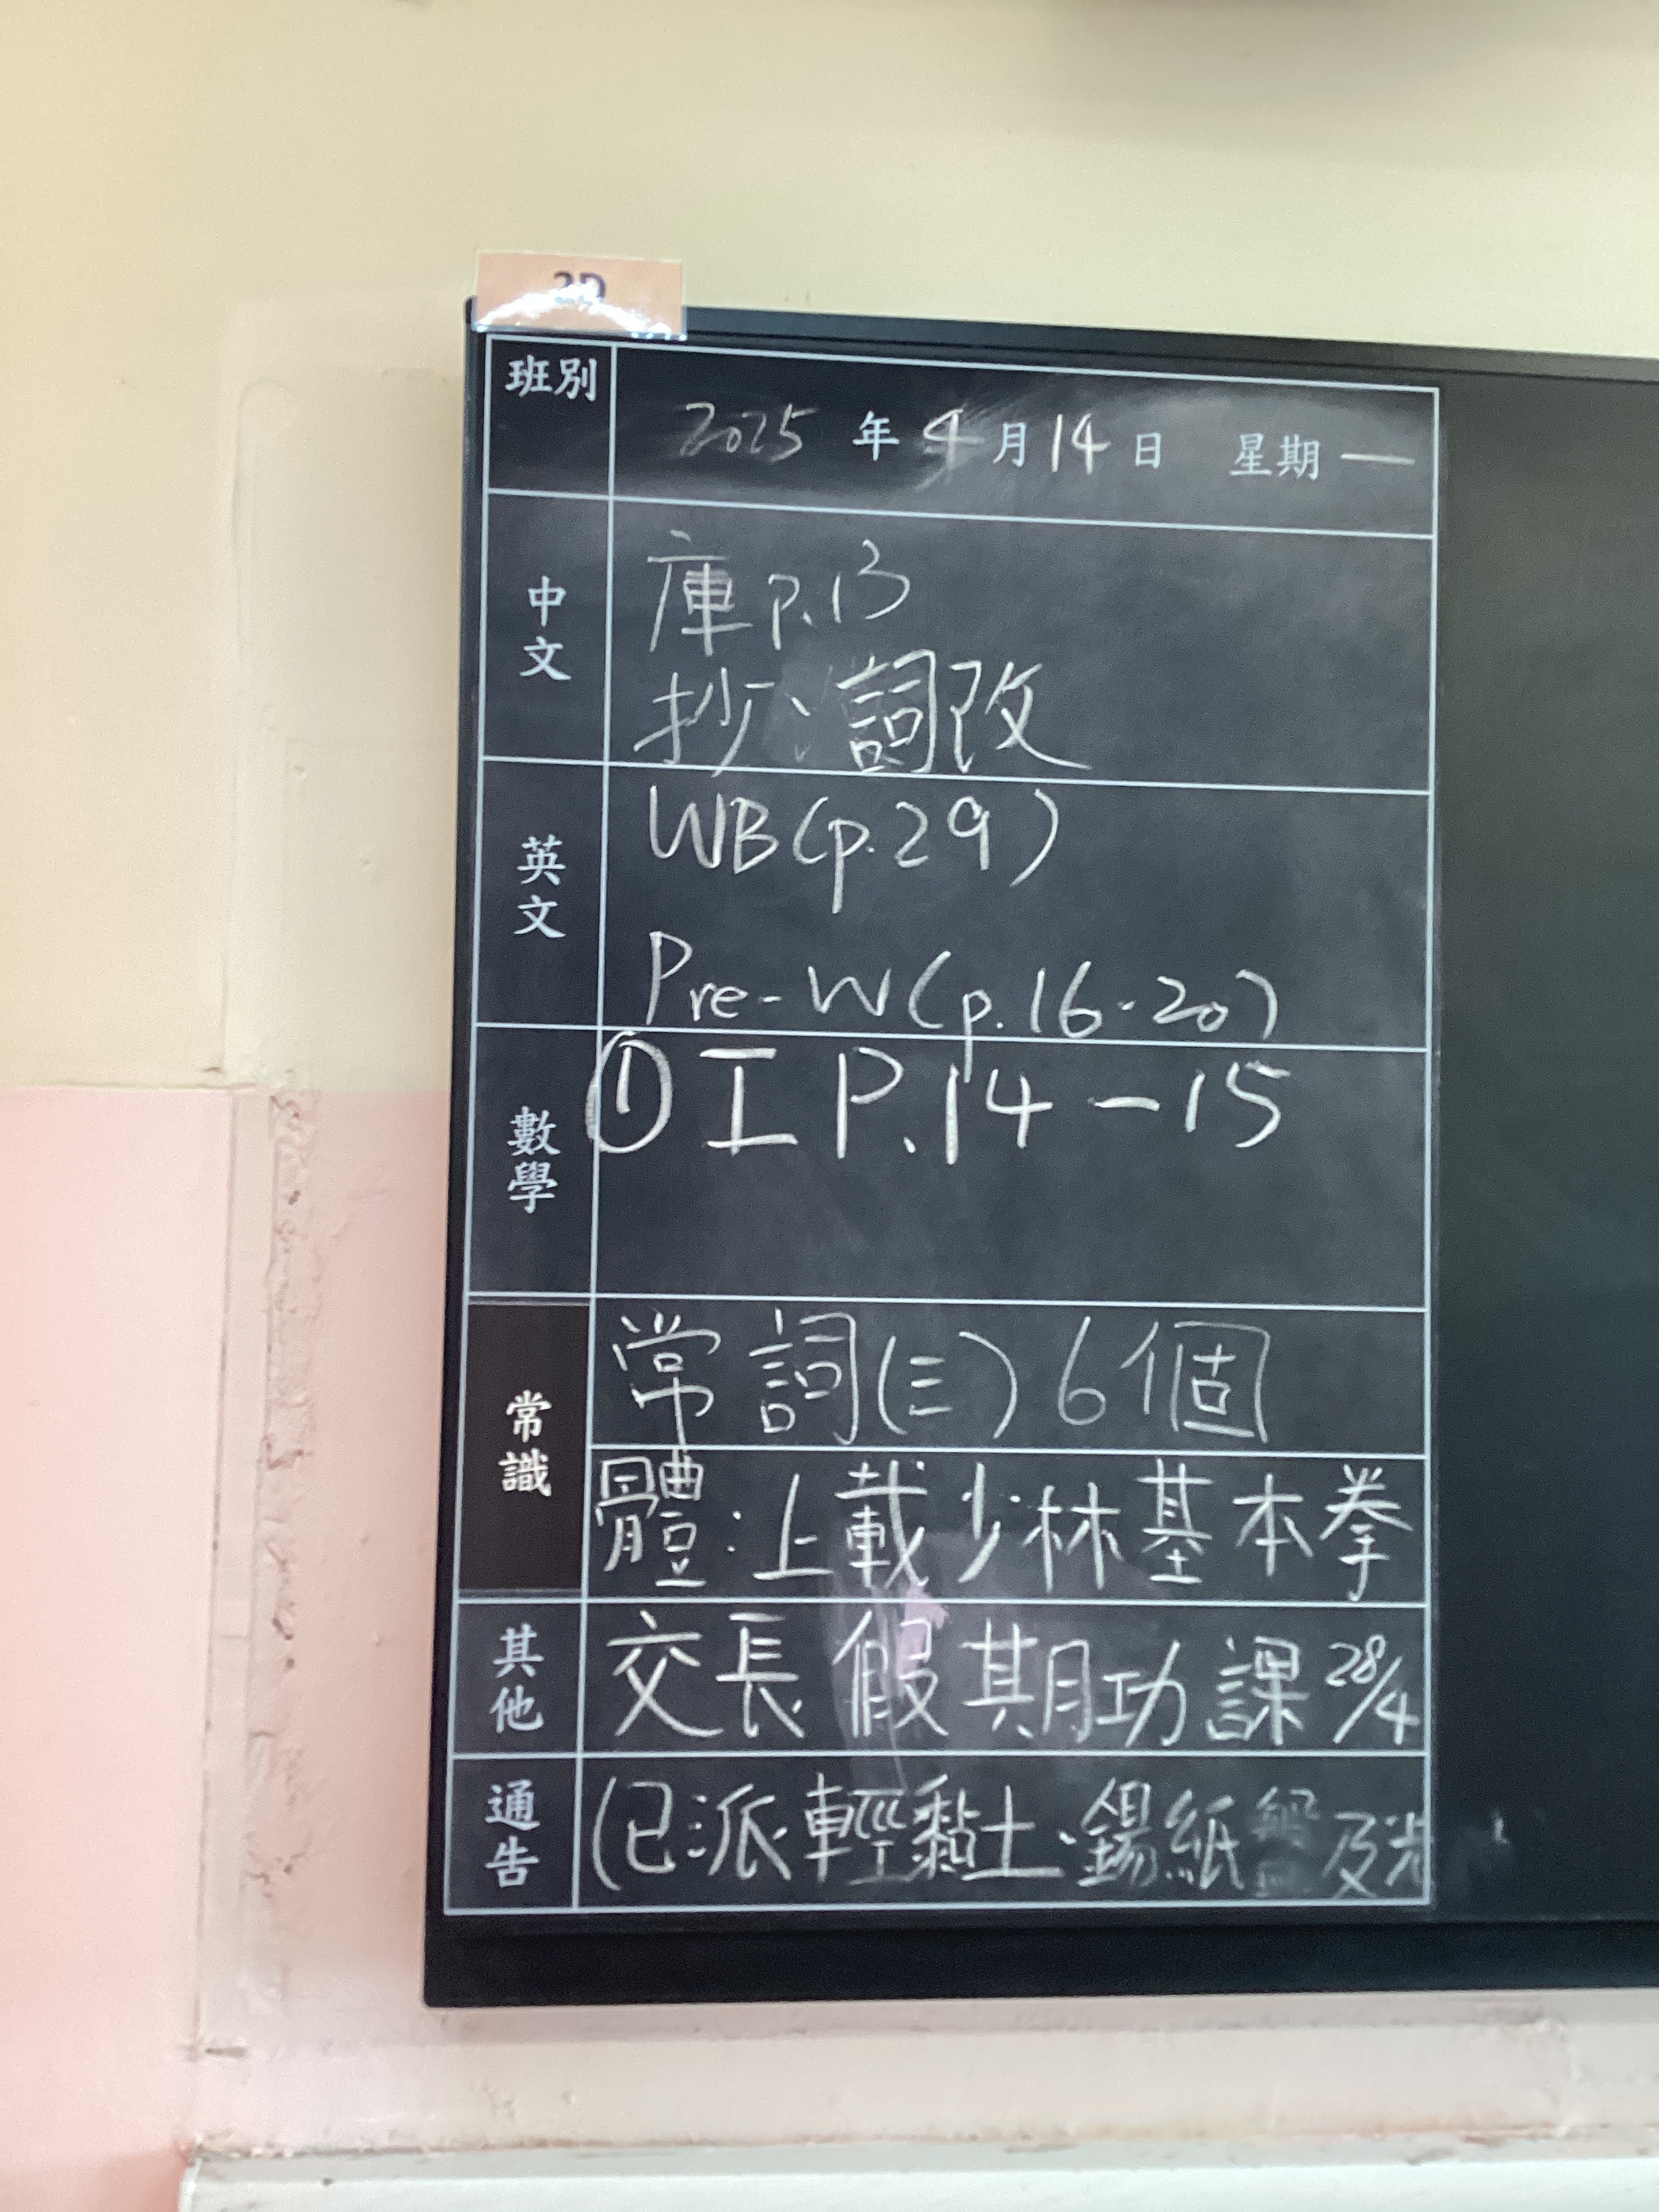 班別
2025 年 4 月 14 日 星期 一
中文
庫 P.13
抄、詞改
英文
WB(p.29)
Pre-W(p.16-20)
數學
① 工 P.14-15
常識
常詞(三)6個
體:上載少林基本拳
其他
交長假期功課 28/4
通告
(已派輕黏土、錫紙 及